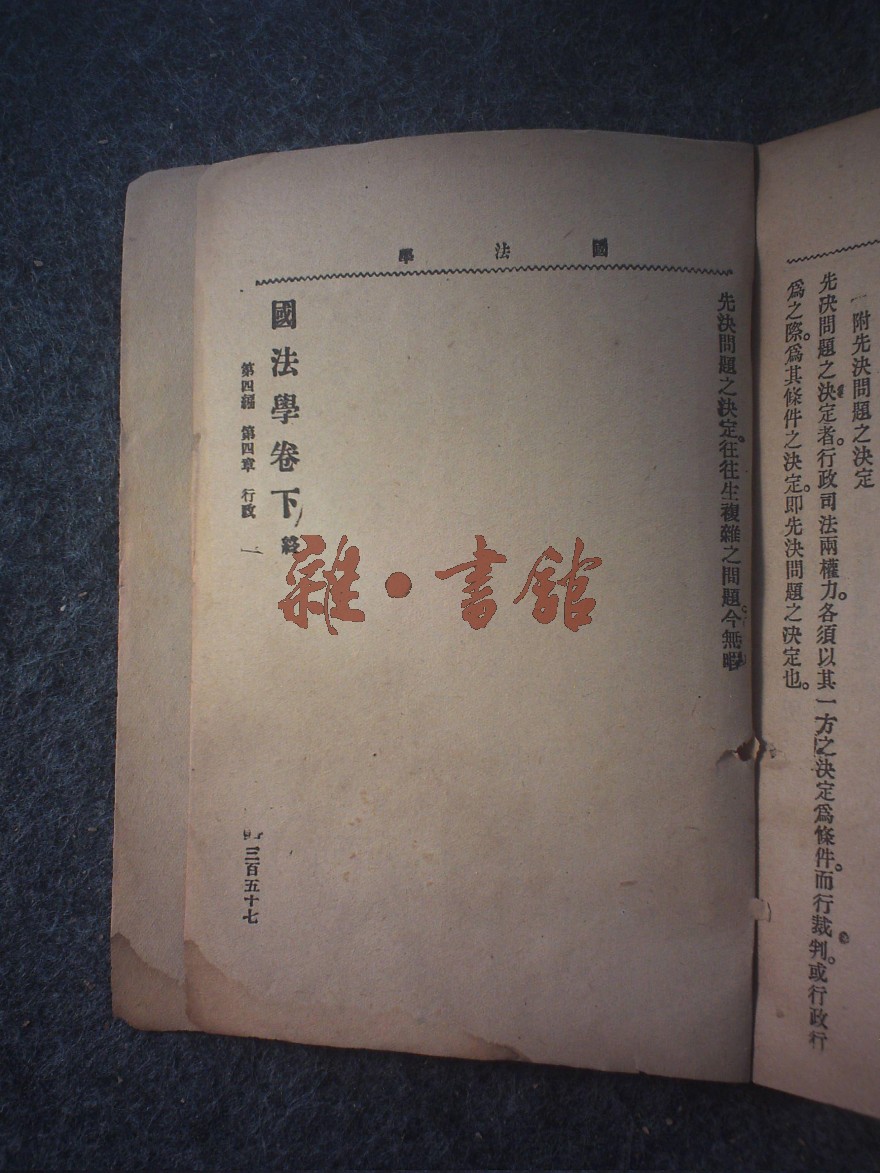 一附先決問題之決定
先決問題之決定者。行政司法兩權力。各須以其一方之決定爲條件。而行裁判。或行政行
爲之際。爲其條件之決定。即先決問題之決定也。
國法學
先決問題之決定。往往生複雜之問題。今無暇
國法學卷下終
第四編 第四章 行政 一
三百五十七
雜·書館